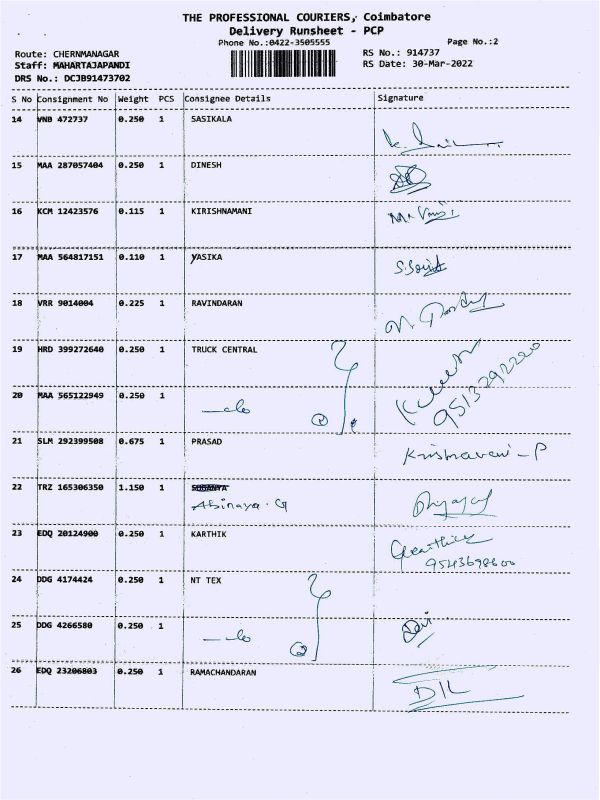 THE PROFESSIONAL COURIERS, Coimbatore
Delivery Runsheet - PCP
Phone No.:0422-3505555 Page No.:2
Route: CHERNMANAGAR RS No.: 914737
Staff: MAHARTAJAPANDI RS Date: 30-Mar-2022
DRS No.: DCJB91473702
S No Consignment No Weight PCS Consignee Details Signature
14 VNB 472737 0.250 1 SASIKALA
15 MAA 287057404 0.250 1 DINESH
16 KCM 12423576 0.115 1 KIRISHNAMANI
17 MAA 564817151 0.110 1 YASIKA
18 VRR 9014004 0.225 1 RAVINDARAN
19 HRD 399272640 0.250 1 TRUCK CENTRAL
20 MAA 565122949 0.250 1 —do
9513292220
21 SLM 292399508 0.675 1 PRASAD Krishnaveni - P
22 TRZ 165306350 1.150 1
Abinaya. G
23 EDQ 20124900 0.250 1 KARTHIK
9543698600
24 DDG 4174424 0.250 1 NT TEX
25 DDG 4266580 0.250 1 —do
26 EDQ 23206803 0.250 1 RAMACHANDARAN